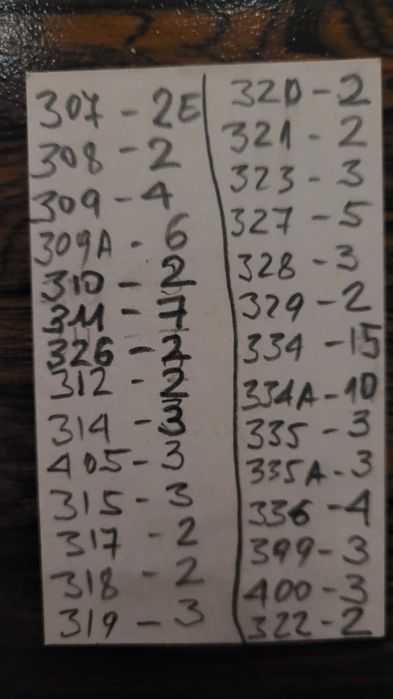 307 - 2E
308 - 2
309 - 4
309A - 6
310 - 2
311 - 7
326 - 2
312 - 2
314 - 3
405 - 3
315 - 3
317 - 2
318 - 2
319 - 3
320 - 2
321 - 2
323 - 3
327 - 5
328 - 3
329 - 2
334 - 15
334A - 10
335 - 3
335A - 3
336 - 4
399 - 3
400 - 3
322 - 2